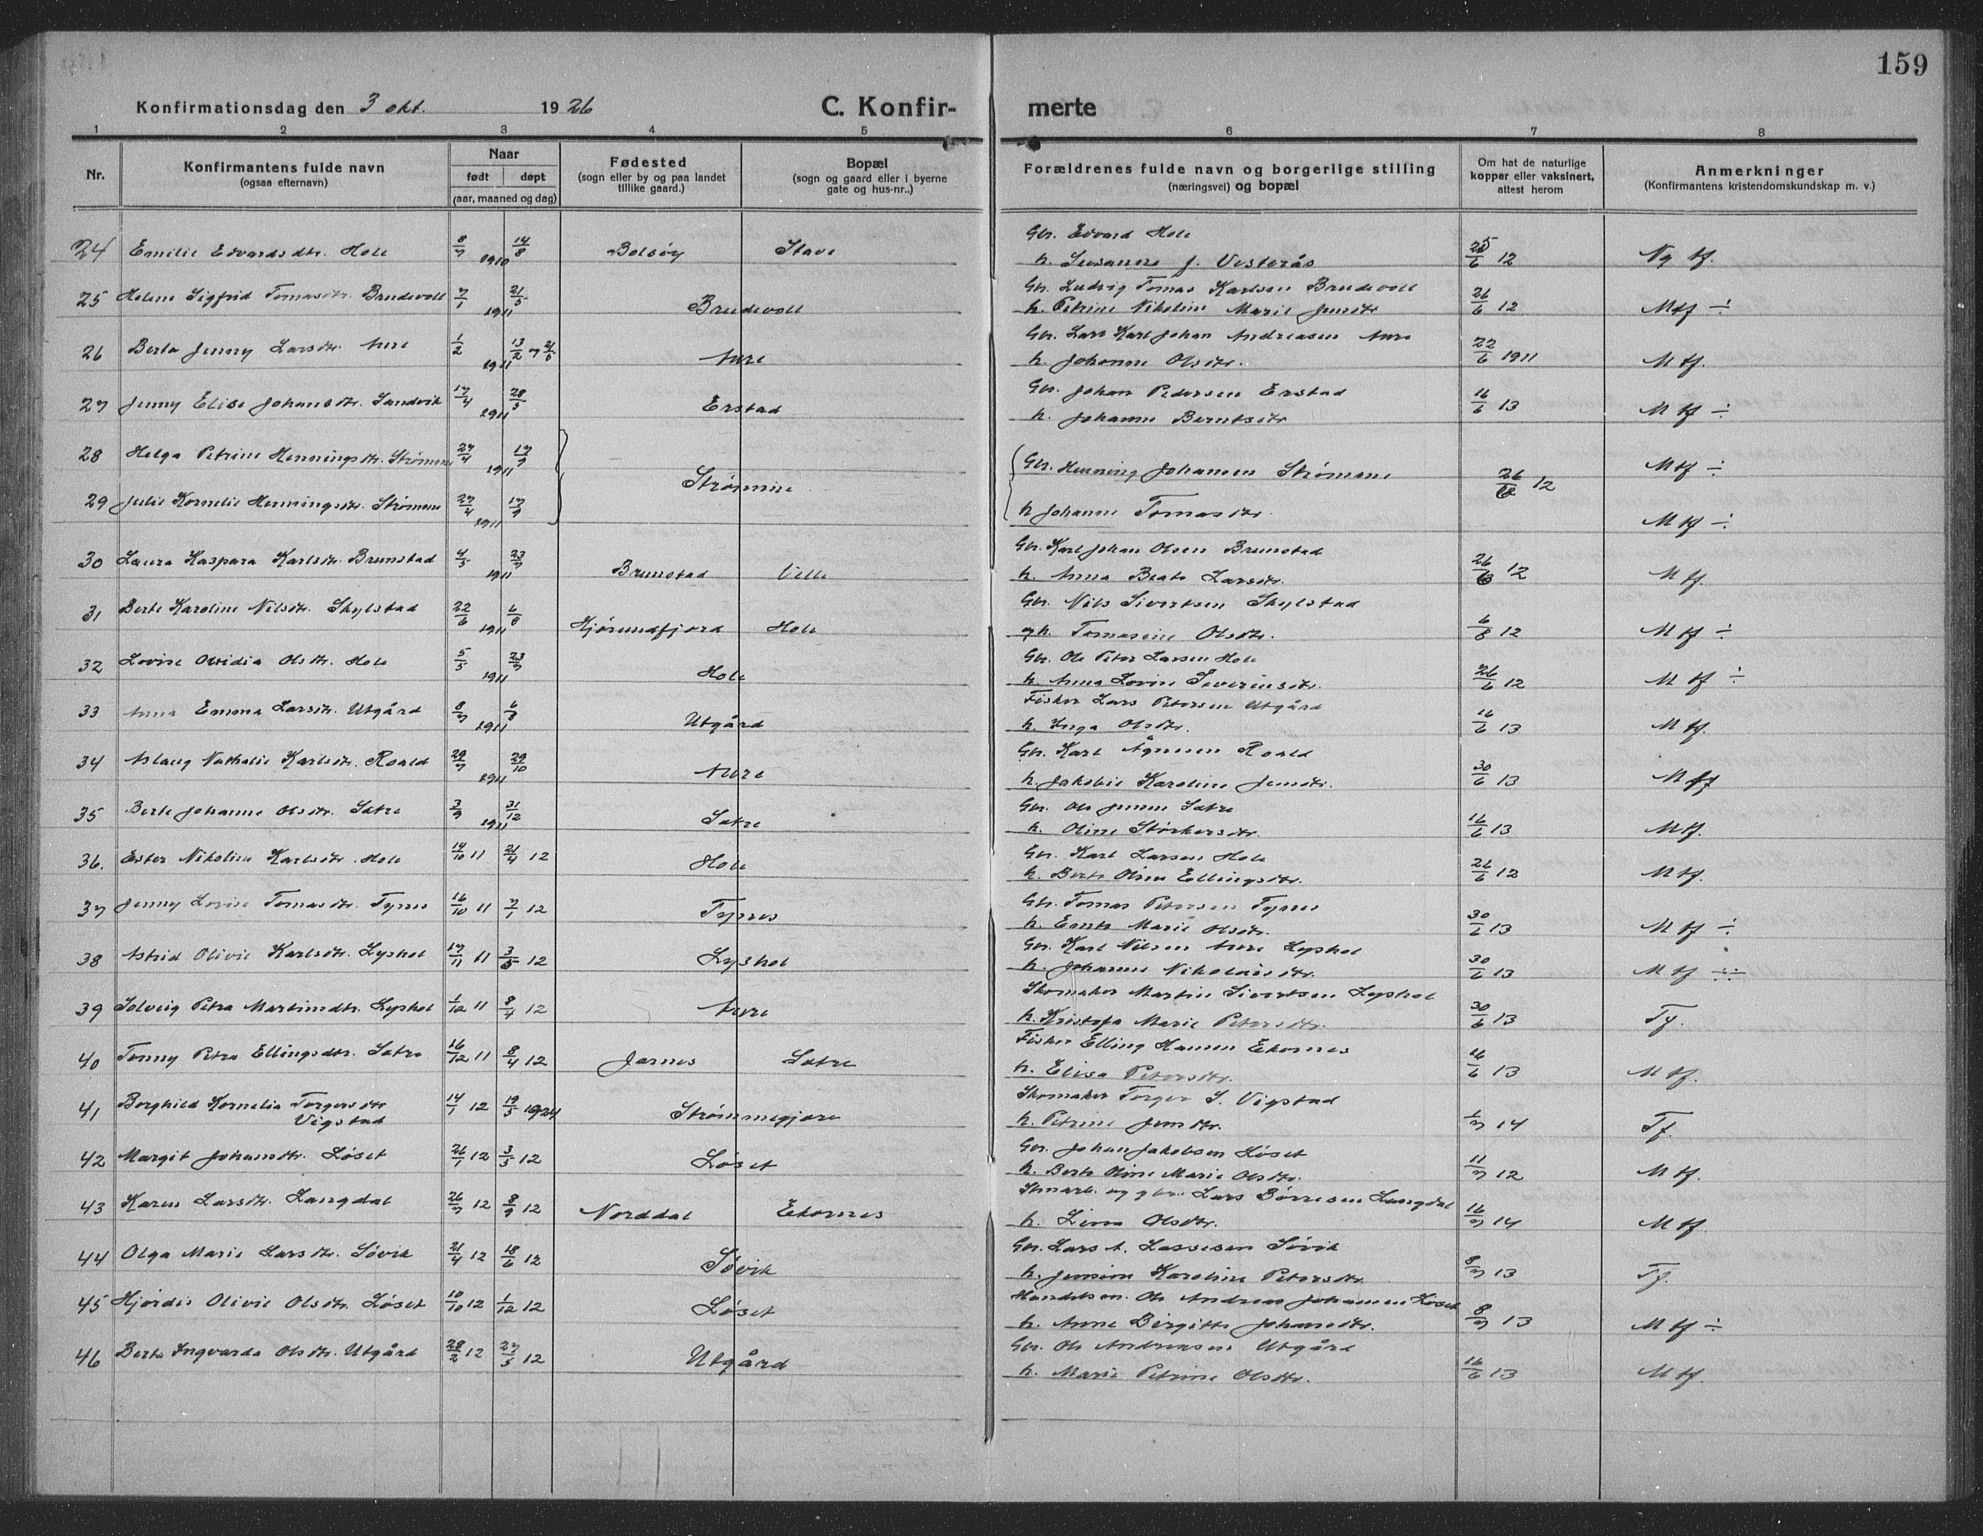 159
Konfirmationsdag den 3 okt. 1926 C. Konfir- merte
1 2 3 4 5 6 7 8
Nr. Konfirmantens fulde navn (ogsaa efternavn) Naar født døpt (aar, maaned og dag) Fødested (sogn eller by og paa landet tillike gaard.) Bopæl (sogn og gaard eller i byerne gate og hus-nr..) Forældrenes fulde navn og borgerlige stilling (næringsvei) og bopæl Om hat de naturlige kopper eller vaksinert, attest herom Anmerkninger (Konfirmantens kristendomskundskap m. v.)
24 Emilie Edvardsdtr. Hole 8/7 1910 14/8 Bolsøy Stave Gbr. Edvard Hole
h. Susanne J. Vesterås 26/6 12 Ng tf.
25 Helene Sigfrid Tomasdtr. Brudevoll 7/1 1911 21/5 Brudevoll Gbr. Ludvig Tomas Karlsen Brudevoll
h. Petrine Nikoline Marie Jensdtr 26/6 12 Mtf ÷
26 Berta Jenny Larsdtr. Aure 1/2 1911 13/2 21/5 Aure Gbr. Lars Karl Johan Andreasen Aure
h. Johanne Olsdtr. 22/6 1911 Mtf.
27 Jenny Elise Johansdtr. Sandvik 17/4 1911 28/5 Erstad Gbr. Johan Pedersen Erstad
h. Johanne Berntsdtr 16/6 13 Mtf ÷
28 Helga Petrine Henningsdtr. Strømme 27/4 1911 17/9 Strømme Gbr. Henning Johansen Strømme 26/6 12 Mtf ÷
29 Julie Kornelie Henningsdtr. Strømme 27/4 1911 17/9 h Johanne Tomasdtr. Mtf ÷
30 Laura Kaspara Karlsdtr. Brunstad 4/5 1911 23/7 Brunstad Velle Gbr. Karl Johan Olsen Brunstad
h. Anna Beate Larsdtr. 26/6 12 Mtf.
31 Berte Karoline Nilsdtr. Skylstad 22/6 1911 6/8 Hjørundfjord Hole Gbr. Nils Sivertsen Skylstad
h. Tomasine Olsdtr. 6/8 12 Mtf ÷
32 Lovise Ovidia Olsdtr. Hole 5/5 1911 23/7 Hole Gbr. Ole Peter Larsen Hole
h. Anna Lovise Severinsdtr. 26/6 12 Mtf ÷
33 Anna Emma Larsdtr. Utgård 8/7 1911 6/8 Utgård Fisker Lars Petersen Utgård
h. Inga Olsdtr. 16/6 13 Mtf.
34 Aslaug Nathalie Karlsdtr. Roald 29/7 1911 29/10 Aure Gbr. Karl Ågesen Roald
h. Jakobie Karoline Jensdtr. 30/6 13 Mtf
35 Berte Johanne Olsdtr. Satre 3/9 1911 31/12 Satre Gbr. Ole Jensen Satre
h. Oline Størkersdtr. 16/6 13 Mtf.
36. Ester Nikoline Karlsdtr. Hole 14/10 11 21/4 12 Hole Gbr. Karl Larsen Hole
h. Berte Oline Ellingsdtr. 26/6 12 Mtf.
37 Jenny Lovise Tomasdtr. Tynes 16/10 11 7/1 12 Tynes Gbr. Tomas Petersen Tynes
h. Marie Olsdtr. 30/6 13 Mtf ÷
38 Astrid Olivie Karlsdtr. Lyshol 17/11 11 3/5 12 Lyshol Gbr. Karl Nilsen Aure Lyshol
h. Johanne Nikolaisdtr. 30/6 13 Mtf ÷÷
39 Solveig Petra Martinsdtr. Lyshol 1/12 11 8/4 12 Aure Skomaker Martin Sivertsen Lyshol
h. Kristofa Marie Petersdtr. 30/6 13 Tf.
40 Tonny Petra Ellingsdtr. Satre 16/12 11 8/4 12 Jarnes Satre Fisker Elling Hansen Ekornes
h. Elisa Petersdtr. 16/6 13 Mtf.
41 Borghild Kornelia Torgersdtr Vigstad 14/1 12 19/5 1924 Strømmegjære Skomaker Torger S. Vigstad
h. Petrine Jensdtr. 1/7 14 Tf.
42 Margit Johansdtr. Løset 26/1 12 3/5 12 Løset Gbr. Johan Jakobsen Løset
h. Berte Oline Marie Olsdtr. 11/7 12 Mtf.
43 Karen Larsdtr. Langdal 26/7 12 8/9 12 Norddal Ekornes og gbr. Lars Børresen Langdal
h. Lina Olsdtr. 16/7 14 Mtf.
44 Olga Marie Larsdtr. Søvik 21/4 12 18/6 12 Søvik Gbr. Lars A. Lassesen Søvik
h. Jensine Karoline Petersdtr. 8/7 13 Tf.
45 Hjørdis Olivie Olsdtr. Løset 10/10 12 1/12 12 Løset Handelsm. Ole Andreas Johansen Løset
h. Anne Birgitte Johansdtr. 8/7 13 Mtf ÷
46 Berta Ingvarda Olsdtr. Utgård 28/2 12 27/5 12 Utgård Gbr. Ole Andreasen Utgård
h. Marie Petrine Olsdtr. 16/6 13 Mtf.